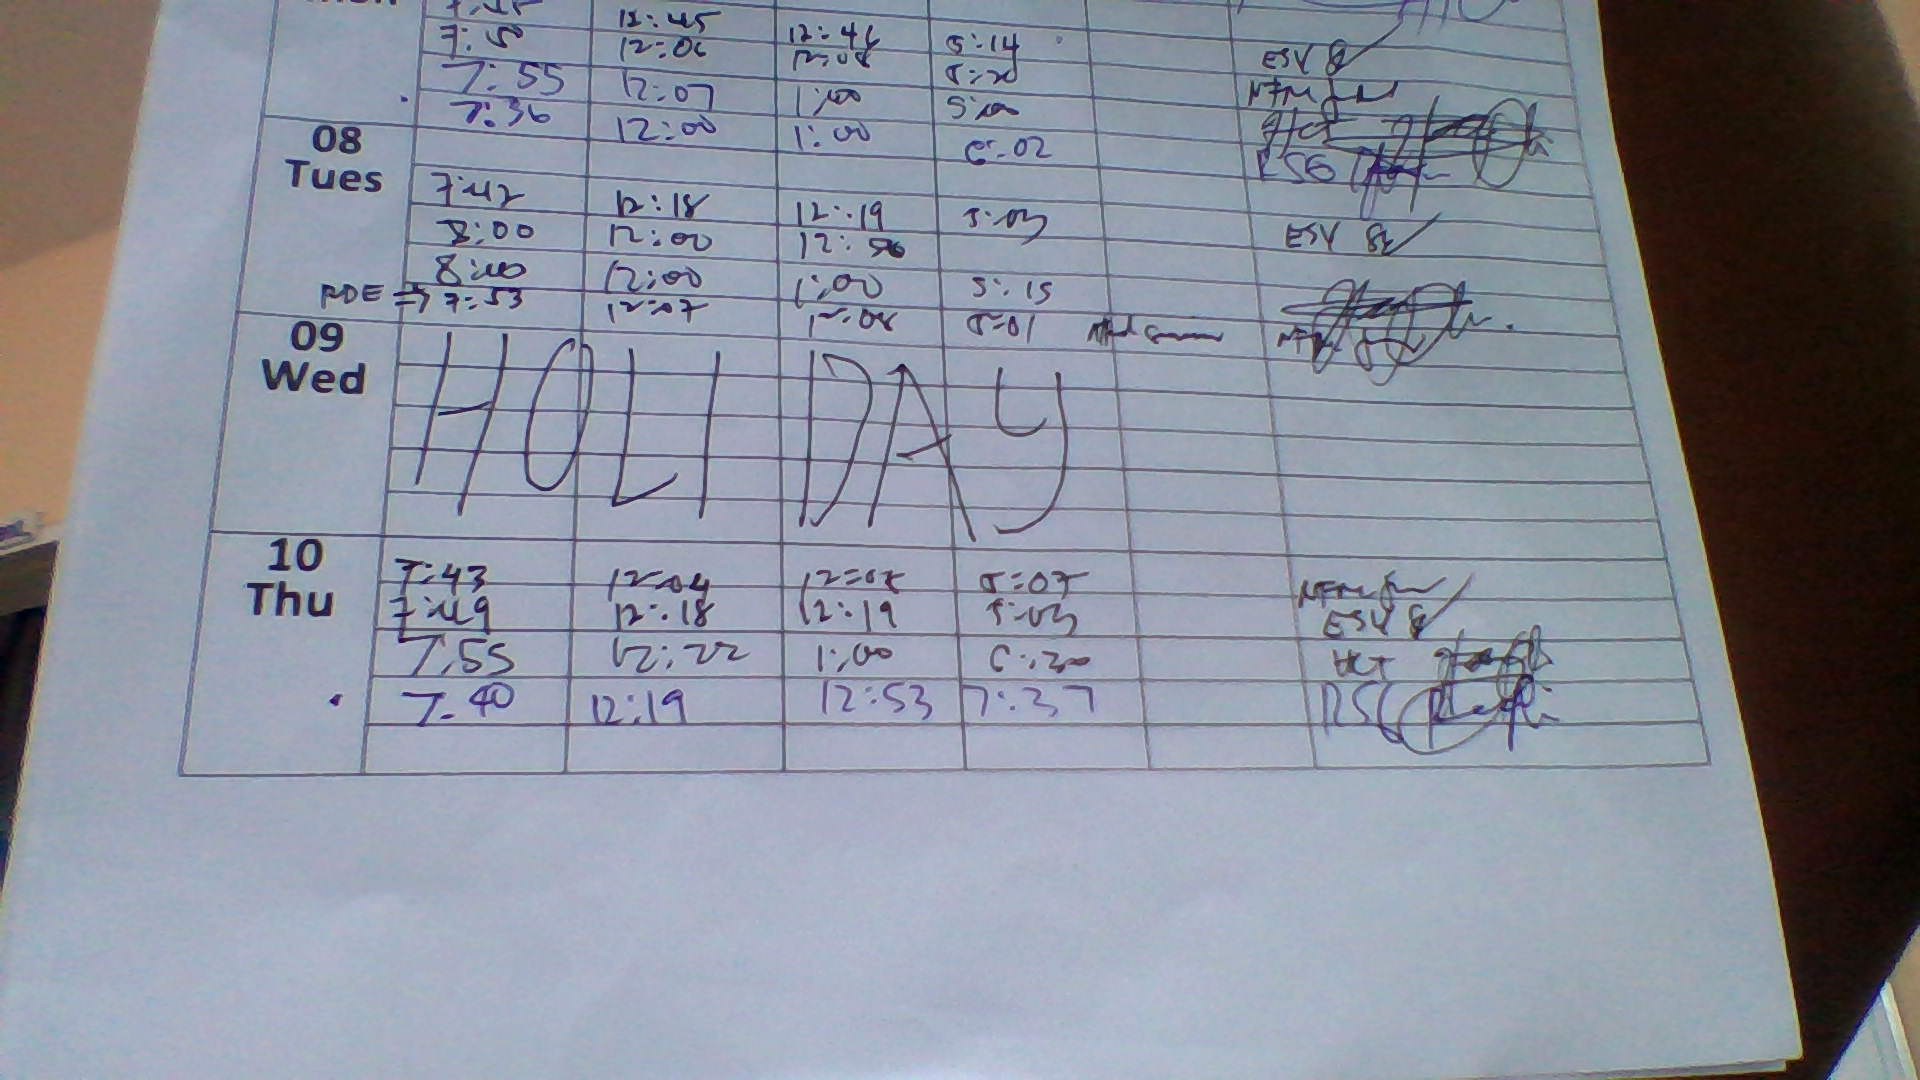 7:45 12:45 12:46 5:14 ESV
7:50 12:06 12:08 5:20 NFM
7:55 12:07 1:00 5:00 HCT
7:36 12:00 1:00 6:02 RSG
08
Tues
7:42 12:18 12:19 5:03 ESV
8:00 12:00 12:56
8:00 12:00 1:00 5:15
RDE => 7:53 12:07 12:08 5:01 NFM
09
Wed
HOLIDAY
10
Thu
7:43 12:04 12:08 5:07 NFM
7:49 12:18 12:19 5:03 ESV
7:55 12:22 1:00 6:30 HCT
7:40 12:19 12:53 7:37 RSG